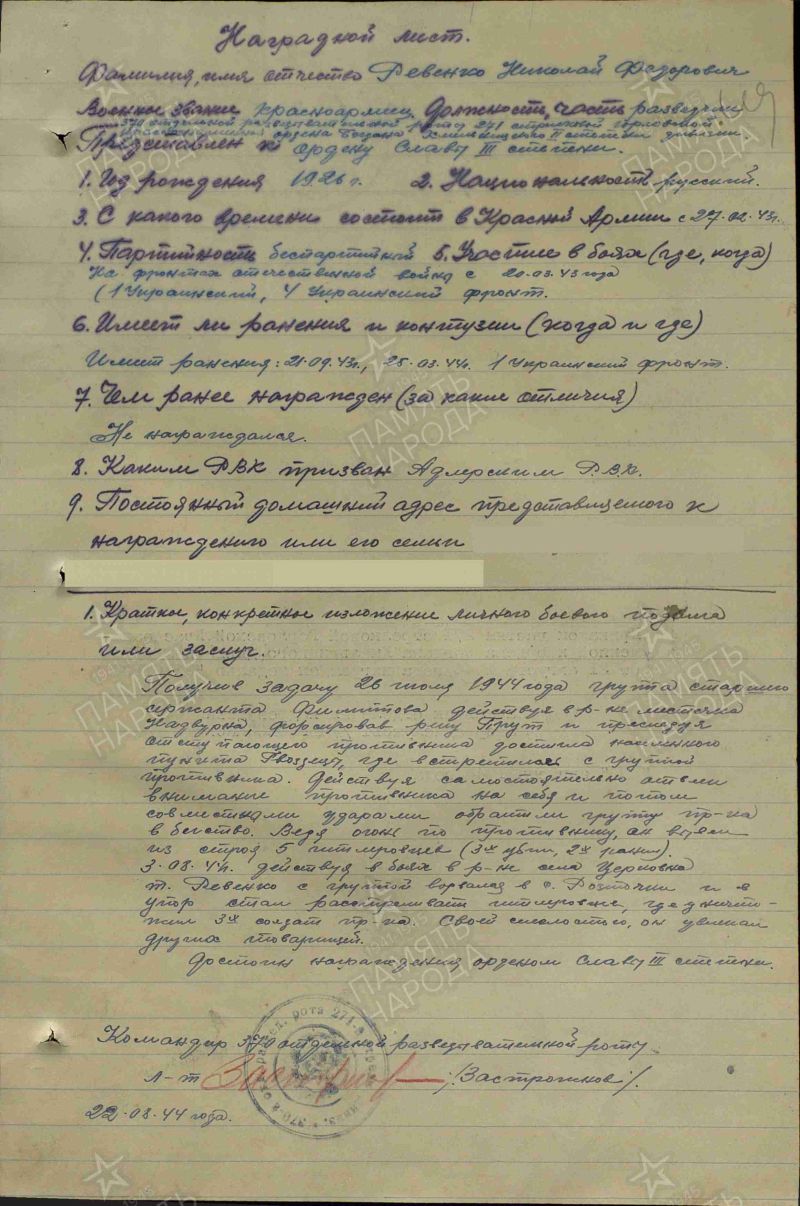 Наградной лист.
Фамилия, имя отчество Ревенко Николай Федорович
Военное звание красноармеец Должность, часть разведчик
370 отдельной разведывательной роты 271 стрелковой Горловской
Краснознаменной ордена Богдана Хмельницкого II степени дивизии.
Представлен к ордену Славы III степени.
1. Год рождения 1926 г. 2. Национальность русский.
3. С какого времени состоит в Красной Армии с 27.02.43г.
4. Партийность беспартийный 5. Участие в боях (где, когда)
На фронтах отечественной войны с 20.03.43 года
(1 Украинский, 4 Украинский фронт.
6. Имеет ли ранения и контузии (когда и где)
Имеет ранения: 21.09.43г., 25.03.44г. 1 Украинский фронт.
7. Чем ранее награжден (за какие отличия)
Не награждался.
8. Каким РВК призван Адлерским РВК.
9. Постоянный домашний адрес представляемого к
награждению или его семьи
1. Краткое, конкретное изложение личного боевого подвига
или заслуг.
Получив задачу 26 июля 1944 года группа старшего
сержанта Филиппова действуя в р-не местечка
Надвурна, форсировав реку Прут и преследуя
отступающего противника достигла населенного
пункта Гвоздец, где встретилась с группой
противника. Действуя самостоятельно отвлек
внимание противника на себя и потом
совместными ударами обратили группу пр-ка
в бегство. Ведя огонь по противнику, он вывел
из строя 5 гитлеровцев (3х убил, 2х ранил).
3.08.44г. действуя в боях в р-не села Церковна
т. Ревенко с группой ворвался в с. Розточки и в
упор стал расстреливать гитлеровцев, где уничто-
жил 3х солдат пр-ка. Своей смелостью, он увлекал
других товарищей.
Достоин награждения орденом Славы III степени.
Командир 370 отдельной разведывательной роты
л-т /Застрожнов/.
22.08.44 года.
ПАМЯТЬ НАРОДА